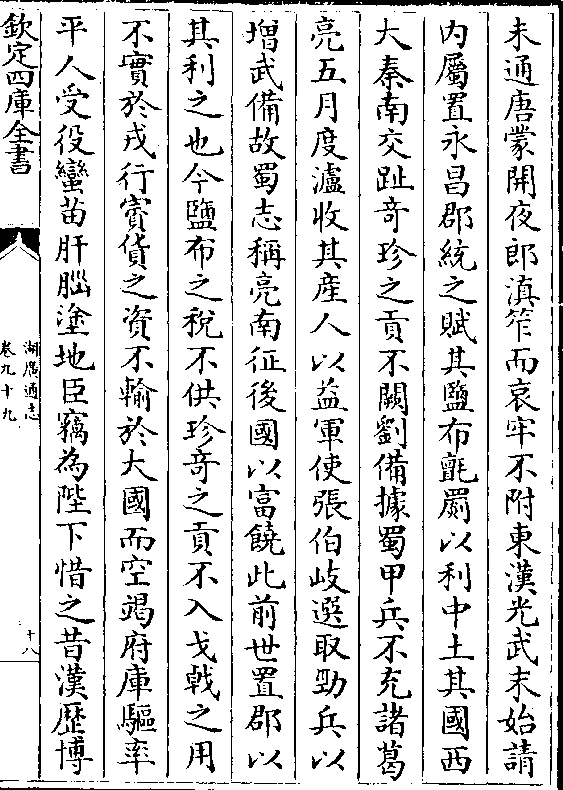 未通唐蒙開夜郎滇笮而哀牢不附東漢光武末始請
内屬置永昌郡統之賦其鹽布氊罽以利中土其國西
大秦南交趾奇珍之貢不闕劉備據蜀甲兵不充諸葛
亮五月度瀘收其産人以益軍使張伯岐選取勁兵以
增武備故蜀志稱亮南征後國以富饒此前世置郡以
其利之也今鹽布之稅不供珍奇之貢不入戈戟之用
不實於戎行寳貨之資不輸於大國而空竭府庫驅率
平人受役蠻苗肝腦塗地臣竊為陛下惜之昔漢歴博
欽定四庫全書
湖廣通志
卷九十九
十八